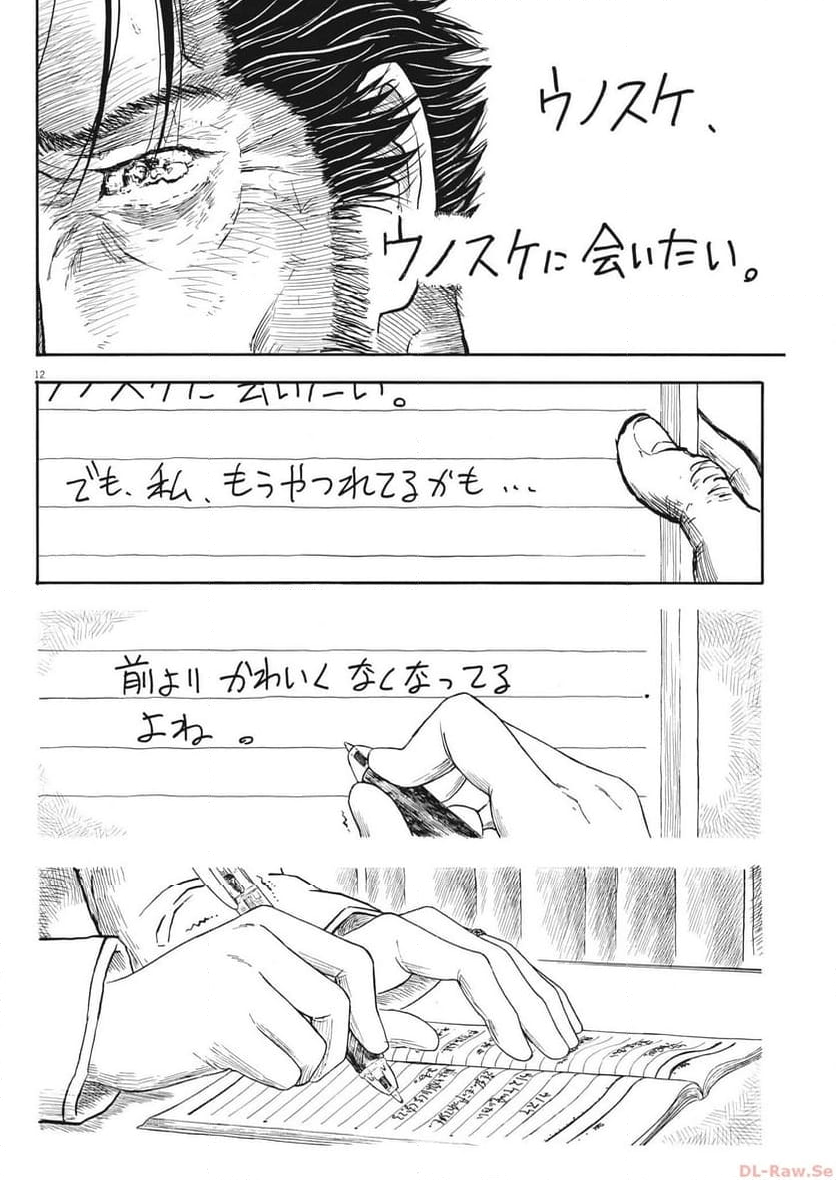 ウノスケ、
ウノスケに会いたい。
12
ウノスケに会いたい。
でも、私、もうやつれてるかも...
前より かわいく なくなってる
よね。
DL-Raw.Se